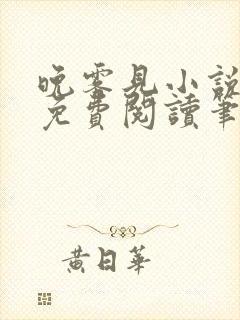 晚零見小說
免費閱讀筆
黃日華